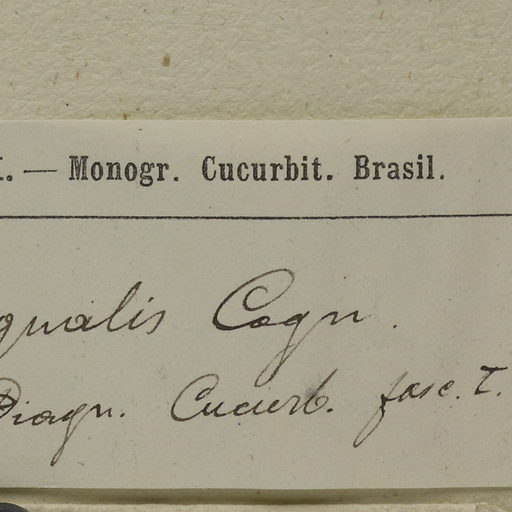 . — Monogr. Cucurbit. Brasil.
gualis Cogn.
Diagn. Cucurb. fasc. I.